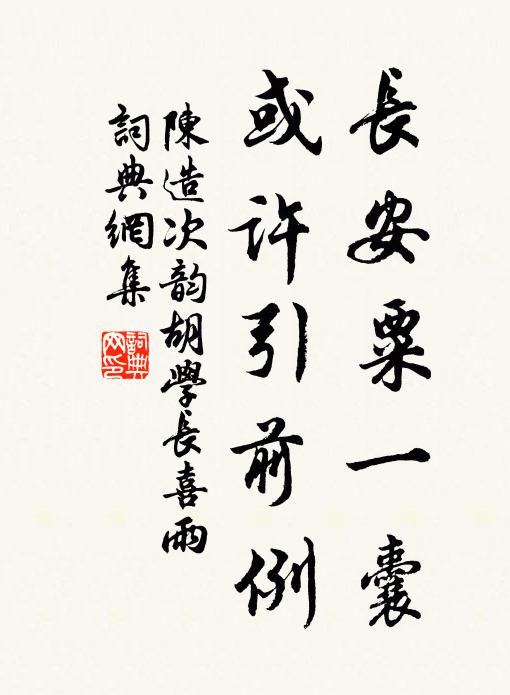 長安粟一囊
或许引前例
陳造次韵胡學長喜雨
詞典網集
詞典网印